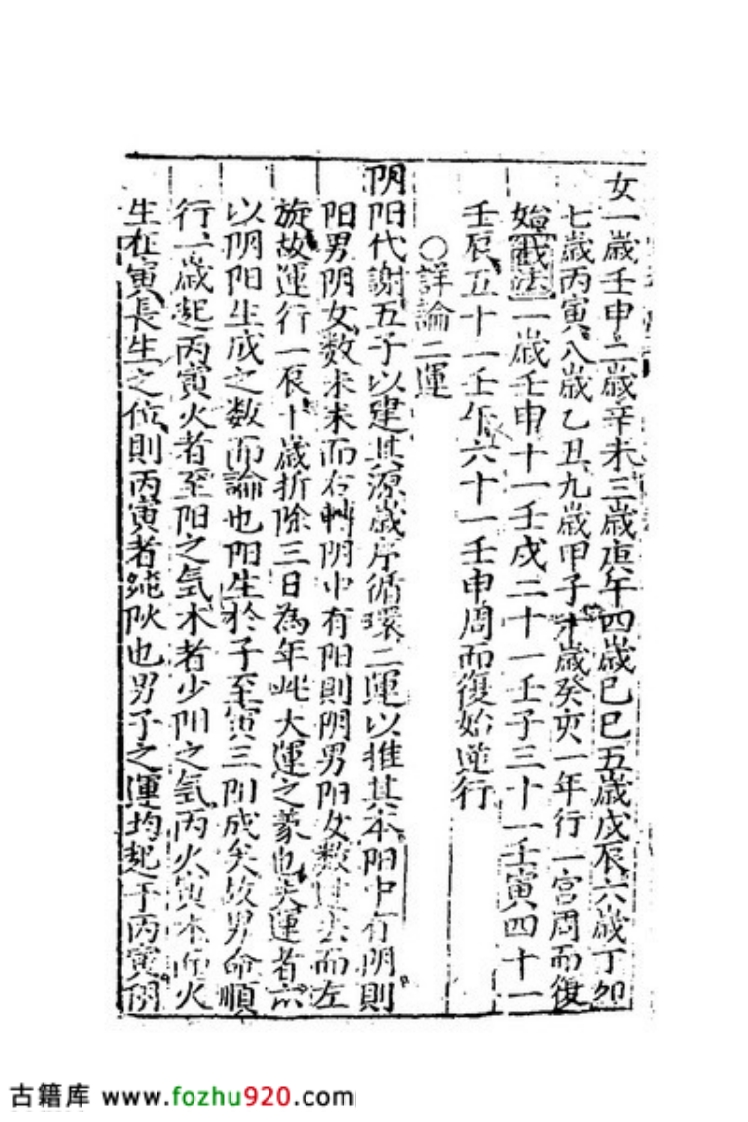 女一歲壬申二歲辛未三歲庚午四歲己巳五歲戊辰六歲丁卯
七歲丙寅八歲乙丑九歲甲子十歲癸亥一年行一宮周而復
始截法一歲壬申十一壬戌二十一壬子三十一壬寅四十一
壬辰五十一壬午六十一壬申周而復始逆行
○詳論二運
阴阳代謝五子以建其源歲序循環二運以推其本阳中有阴則
阳男阴女数未来而右轉阴中有阳則阴男阳女数過去而左
旋故運行一辰十歲折除三日為年此大運之蒙也夫運者
以阴阳生成之数而論也阳生於子至寅三阳成矣故男命順
行一歲起丙寅火者至阳之氣木者少阳之氣丙火寅木而火
生在寅長生之位則丙寅者純阳也男子之運均起于丙寅阴
古籍库 www.fozhu920.com